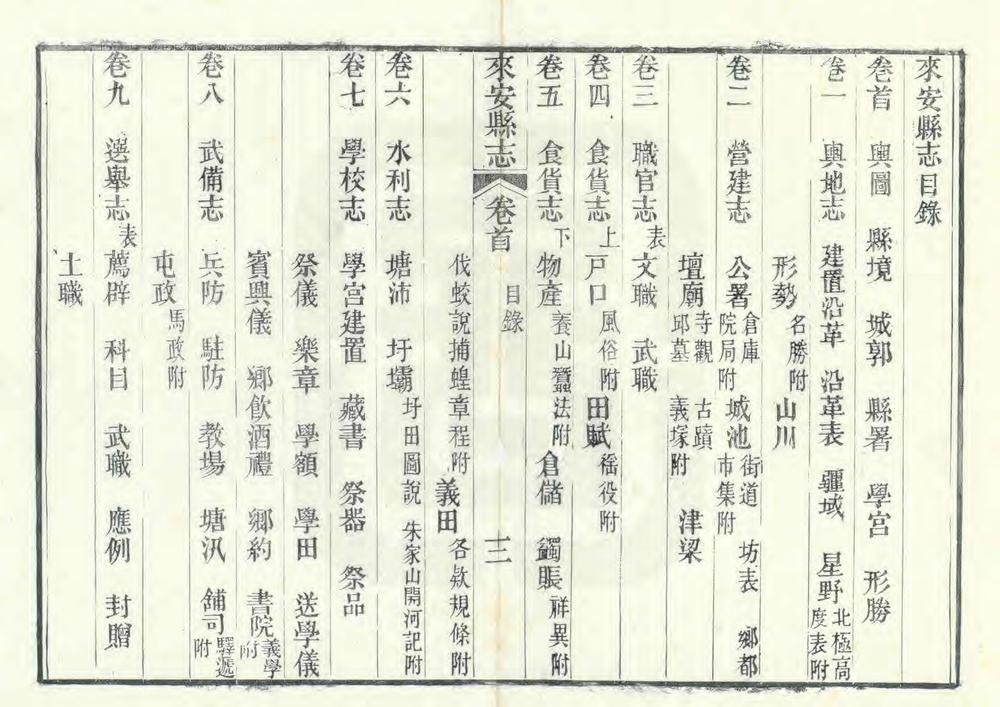 來安縣志目錄
卷首 輿圖 縣境 城郭 縣署 學宫 形勝
卷一 輿地志 建置沿革 沿革表 疆域 星野 北極高度表附
形勢 名勝附 山川
卷二 營建志 公署 倉庫院局附 城池 街道市集附 坊表 鄉都
壇廟 寺觀邱墓 古蹟義塚附 津梁
卷三 職官志 表 文職 武職
卷四 食貨志 上 戸口 風俗附 田賦 徭役附
卷五 食貨志 下 物產 養山蠶法附 倉儲 蠲賑 祥異附
來安縣志 卷首 目錄 三
伐蛟說捕蝗章程附 義田 各欵規條附
卷六 水利志 塘沛 圩壩 圩田圖說 朱家山開河記附
卷七 學校志 學宫建置 藏書 祭器 祭品
祭儀 樂章 學額 學田 送學儀
賓興儀 鄉飲酒禮 鄉約 書院 義學附
卷八 武備志 兵防 駐防 教場 塘汛 舖司 驛遞附
屯政 馬政附
卷九 選舉志 表 薦辟 科目 武職 應例 封贈
土職